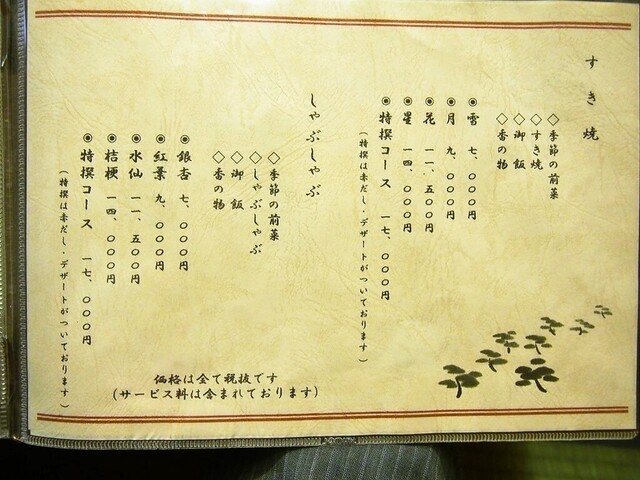 すき焼
◇季節の前菜
◇すき焼
◇御飯
◇香の物
◉雪 七、〇〇〇円
◉月 九、〇〇〇円
◉花 一一、五〇〇円
◉星 一四、〇〇〇円
◉特撰コース 一七、〇〇〇円
(特撰は赤だし・デザートがついております)
しゃぶしゃぶ
◇季節の前菜
◇しゃぶしゃぶ
◇御飯
◇香の物
◉銀杏 七、〇〇〇円
◉紅葉 九、〇〇〇円
◉水仙 一一、五〇〇円
◉桔梗 一四、〇〇〇円
◉特撰コース 一七、〇〇〇円
(特撰は赤だし・デザートがついております)
価格は全て税抜です
(サービス料は含まれております)